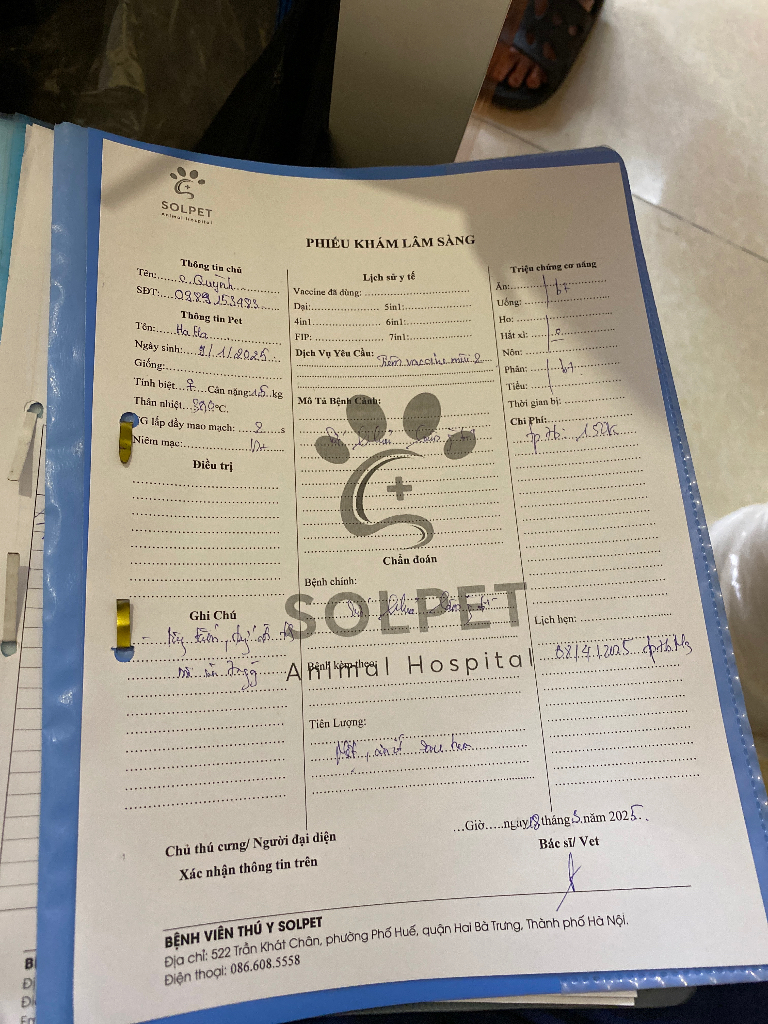 SOLPET
Animal Hospital
PHIẾU KHÁM LÂM SÀNG
Thông tin chủ
Tên: c Quỳnh
SĐT: 0989153983
Thông tin Pet
Tên: Ha Ha
Ngày sinh: 9/1/2025
Giống:
Tính biệt ♀ Cân nặng: 1,5 kg
Thân nhiệt: °C.
TG lấp đầy mao mạch: 2 s
Niêm mạc:
Điều trị
Ghi Chú
Lịch sử y tế
Vaccine đã dùng:
Dại: 5in1:
4in1 6in1:
FIP: 7in1:
Dịch Vụ Yêu Cầu: Tiêm vaccine mũi 2
Mô Tả Bệnh Cảnh:
Chẩn đoán
Bệnh chính:
SOLPET
Animal Hospital
Bệnh kèm theo:
Tiên Lượng:
Triệu chứng cơ năng
Ăn: bt
Uống:
Ho:
Hắt xì:
Nôn:
Phân: bt
Tiểu:
Thời gian bị:
Chi Phí:
152k
Lịch hẹn:
08/4/2025
Giờ ngày 18 tháng 3 năm 2025
Chủ thú cưng/ Người đại diện
Xác nhận thông tin trên
Bác sĩ/ Vet
BỆNH VIỆN THÚ Y SOLPET
Địa chỉ: 522 Trần Khát Chân, phường Phố Huế, quận Hai Bà Trưng, Thành phố Hà Nội.
Điện thoại: 086.608.5558